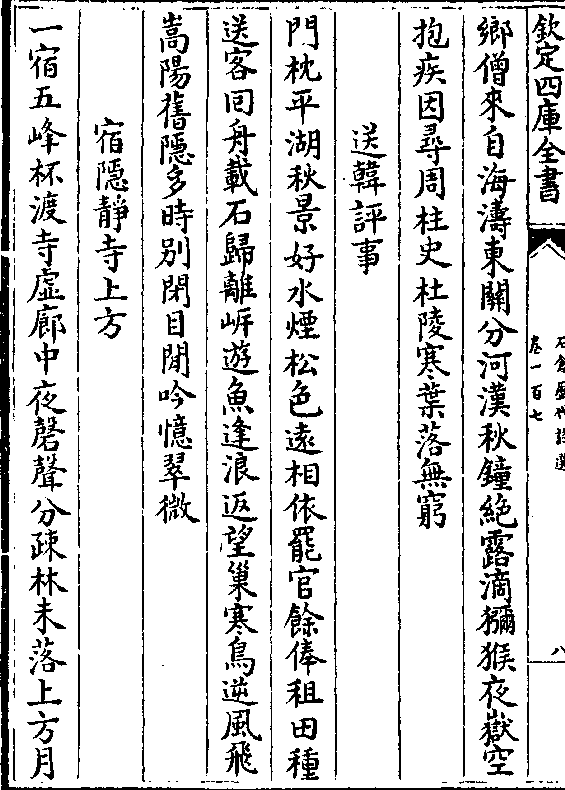 欽定四庫全書
卷一百七
八
鄉僧來自海濤東關分河漢秋鐘絶露滴獼猴夜嶽空
抱疾因尋周柱史杜陵寒葉落無窮
送韓評事
門枕平湖秋景好水煙松色遠相依罷官餘俸租田種
送客回舟載石歸離岍遊魚逢浪返望巢寒鳥逆風飛
嵩陽舊隠多時別閉目閒吟憶翠微
宿隠靜寺上方
一宿五峰杯渡寺虛廊中夜磬聲分疎林未落上方月